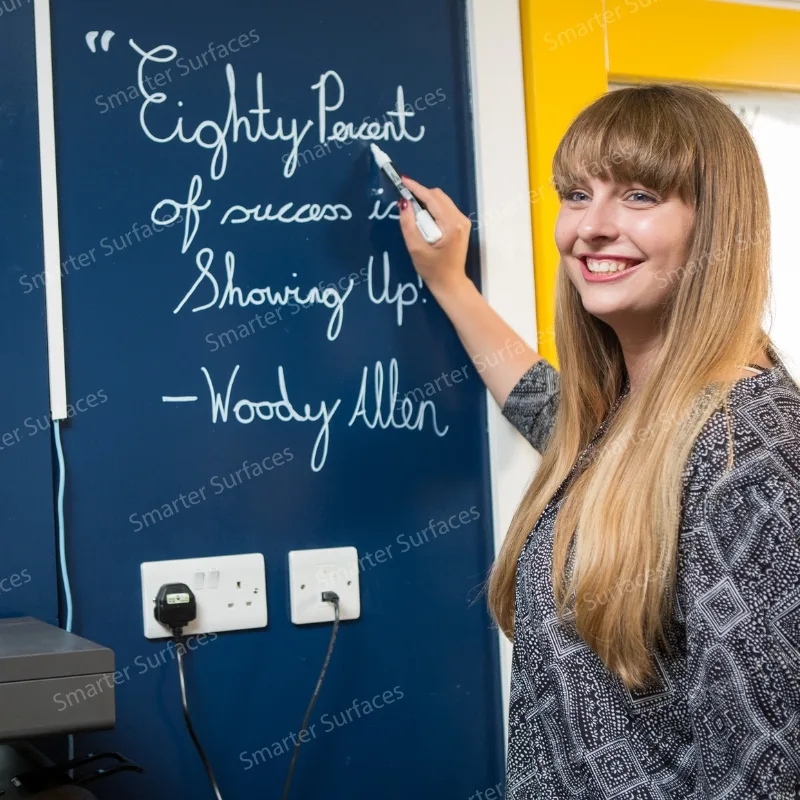 “Eighty Percent
of success is
Showing Up!
- Woody Allen
Smarter Surfaces